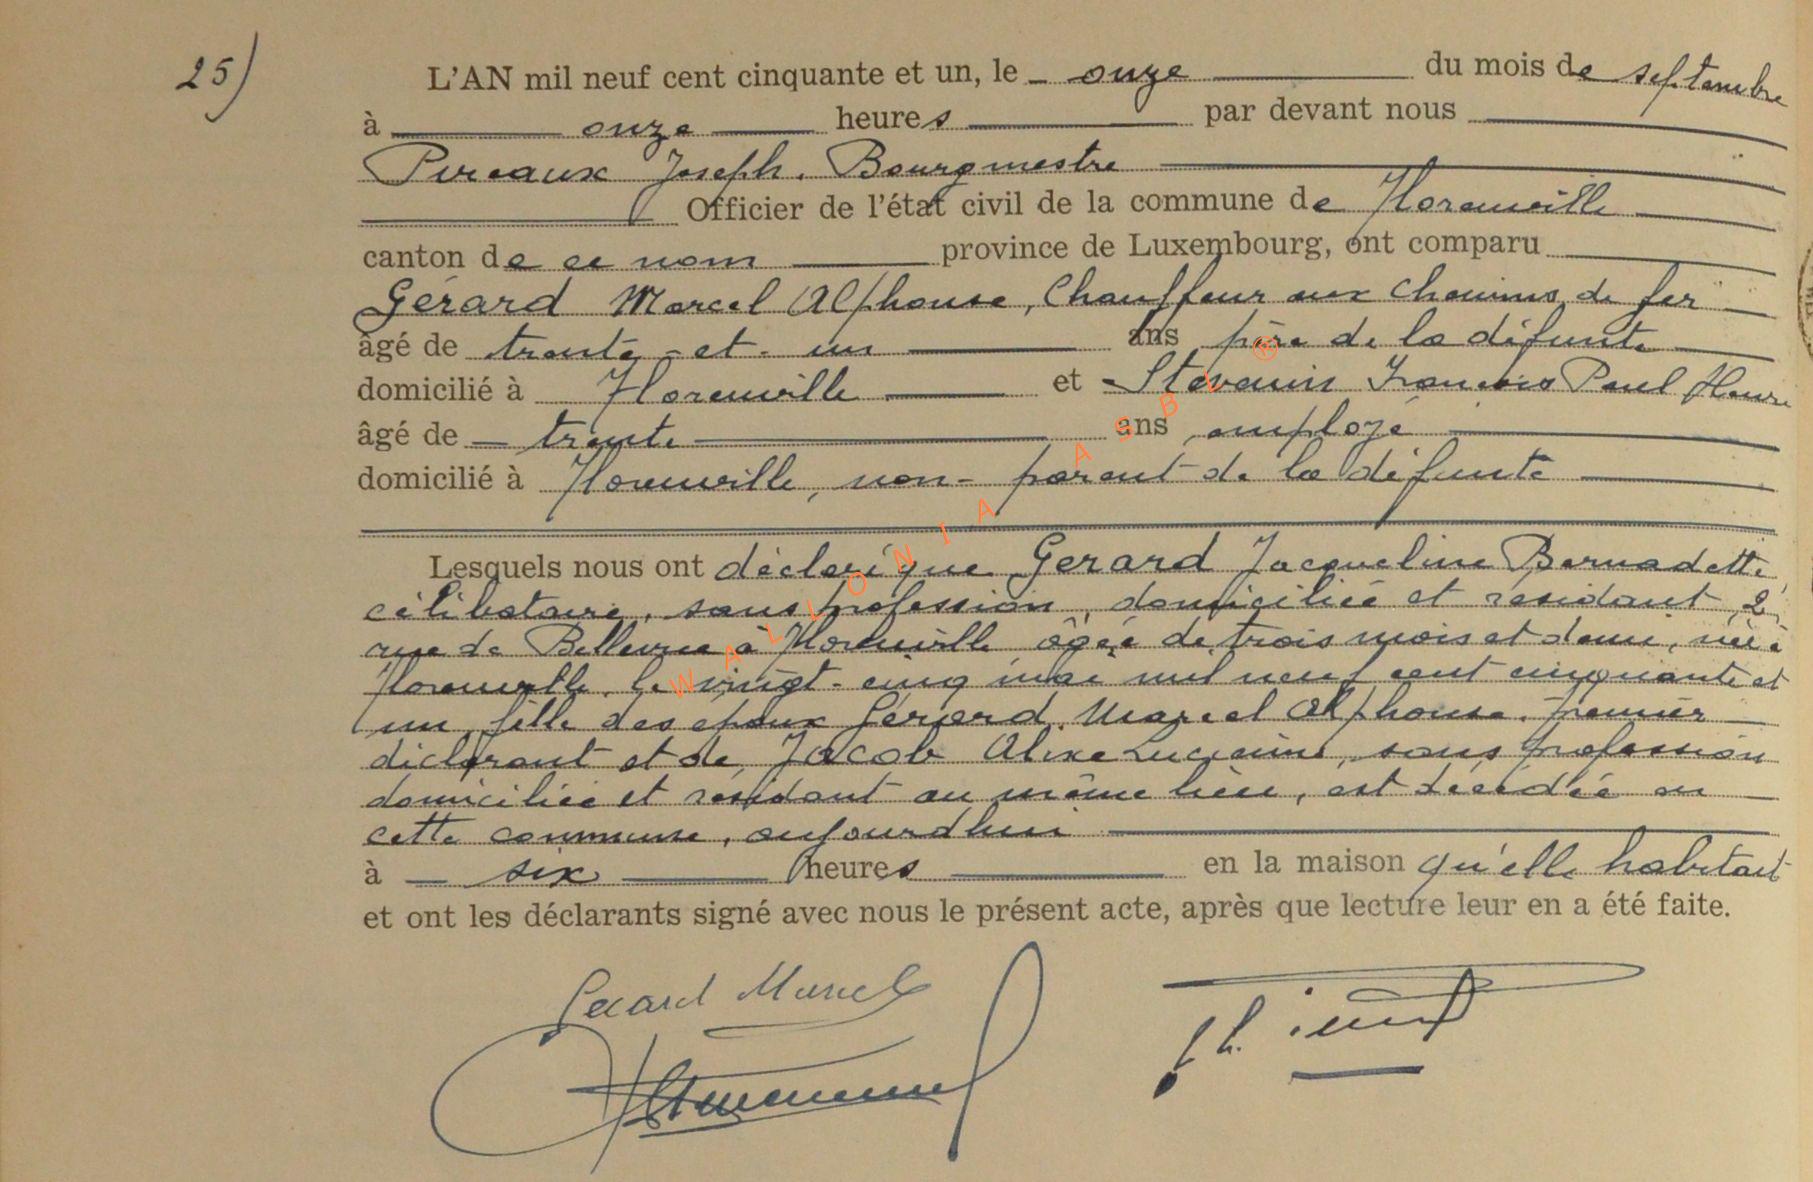 25)
L'AN mil neuf cent cinquante et un, le onze du mois de septembre
à onze heures par devant nous
Pireaux Joseph. Bourgmestre
Officier de l'état civil de la commune de Florenville
canton de ce nom province de Luxembourg, ont comparu
Gérard Marcel Alphonse, Chauffeur aux chemins de fer
âgé de trente-et-un ans père de la défunte
domicilié à Florenville et Stevenin François Paul Henri
âgé de trente ans, employé
domicilié à Florenville, non-parent de la défunte
Lesquels nous ont déclaré que Gerard Jacqueline Bernadette
célibataire, sans profession, domiciliée et résidant, 2,
rue de Bellevue à Florenville âgée de trois mois et demi, née à
Florenville, le vingt-cinq mai mil neuf cent cinquante et
un, fille des époux Gérard Marcel Alphonse, premier
déclarant et de Jacob Alixe Lucienne, sans profession
domiciliée et résidant au même lieu, est décédée en
cette commune, aujourd'hui
à six heures en la maison qu'elle habitait
et ont les déclarants signé avec nous le présent acte, après que lecture leur en a été faite.
Gerard Marcel
WALLONIA ASBL ®